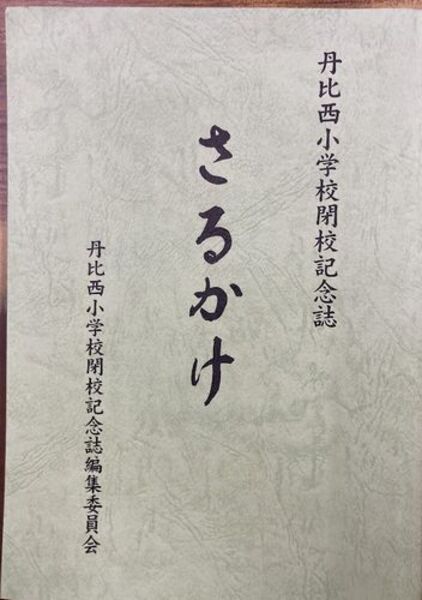 丹比西小学校閉校記念誌
さるかけ
丹比西小学校閉校記念誌編集委員会